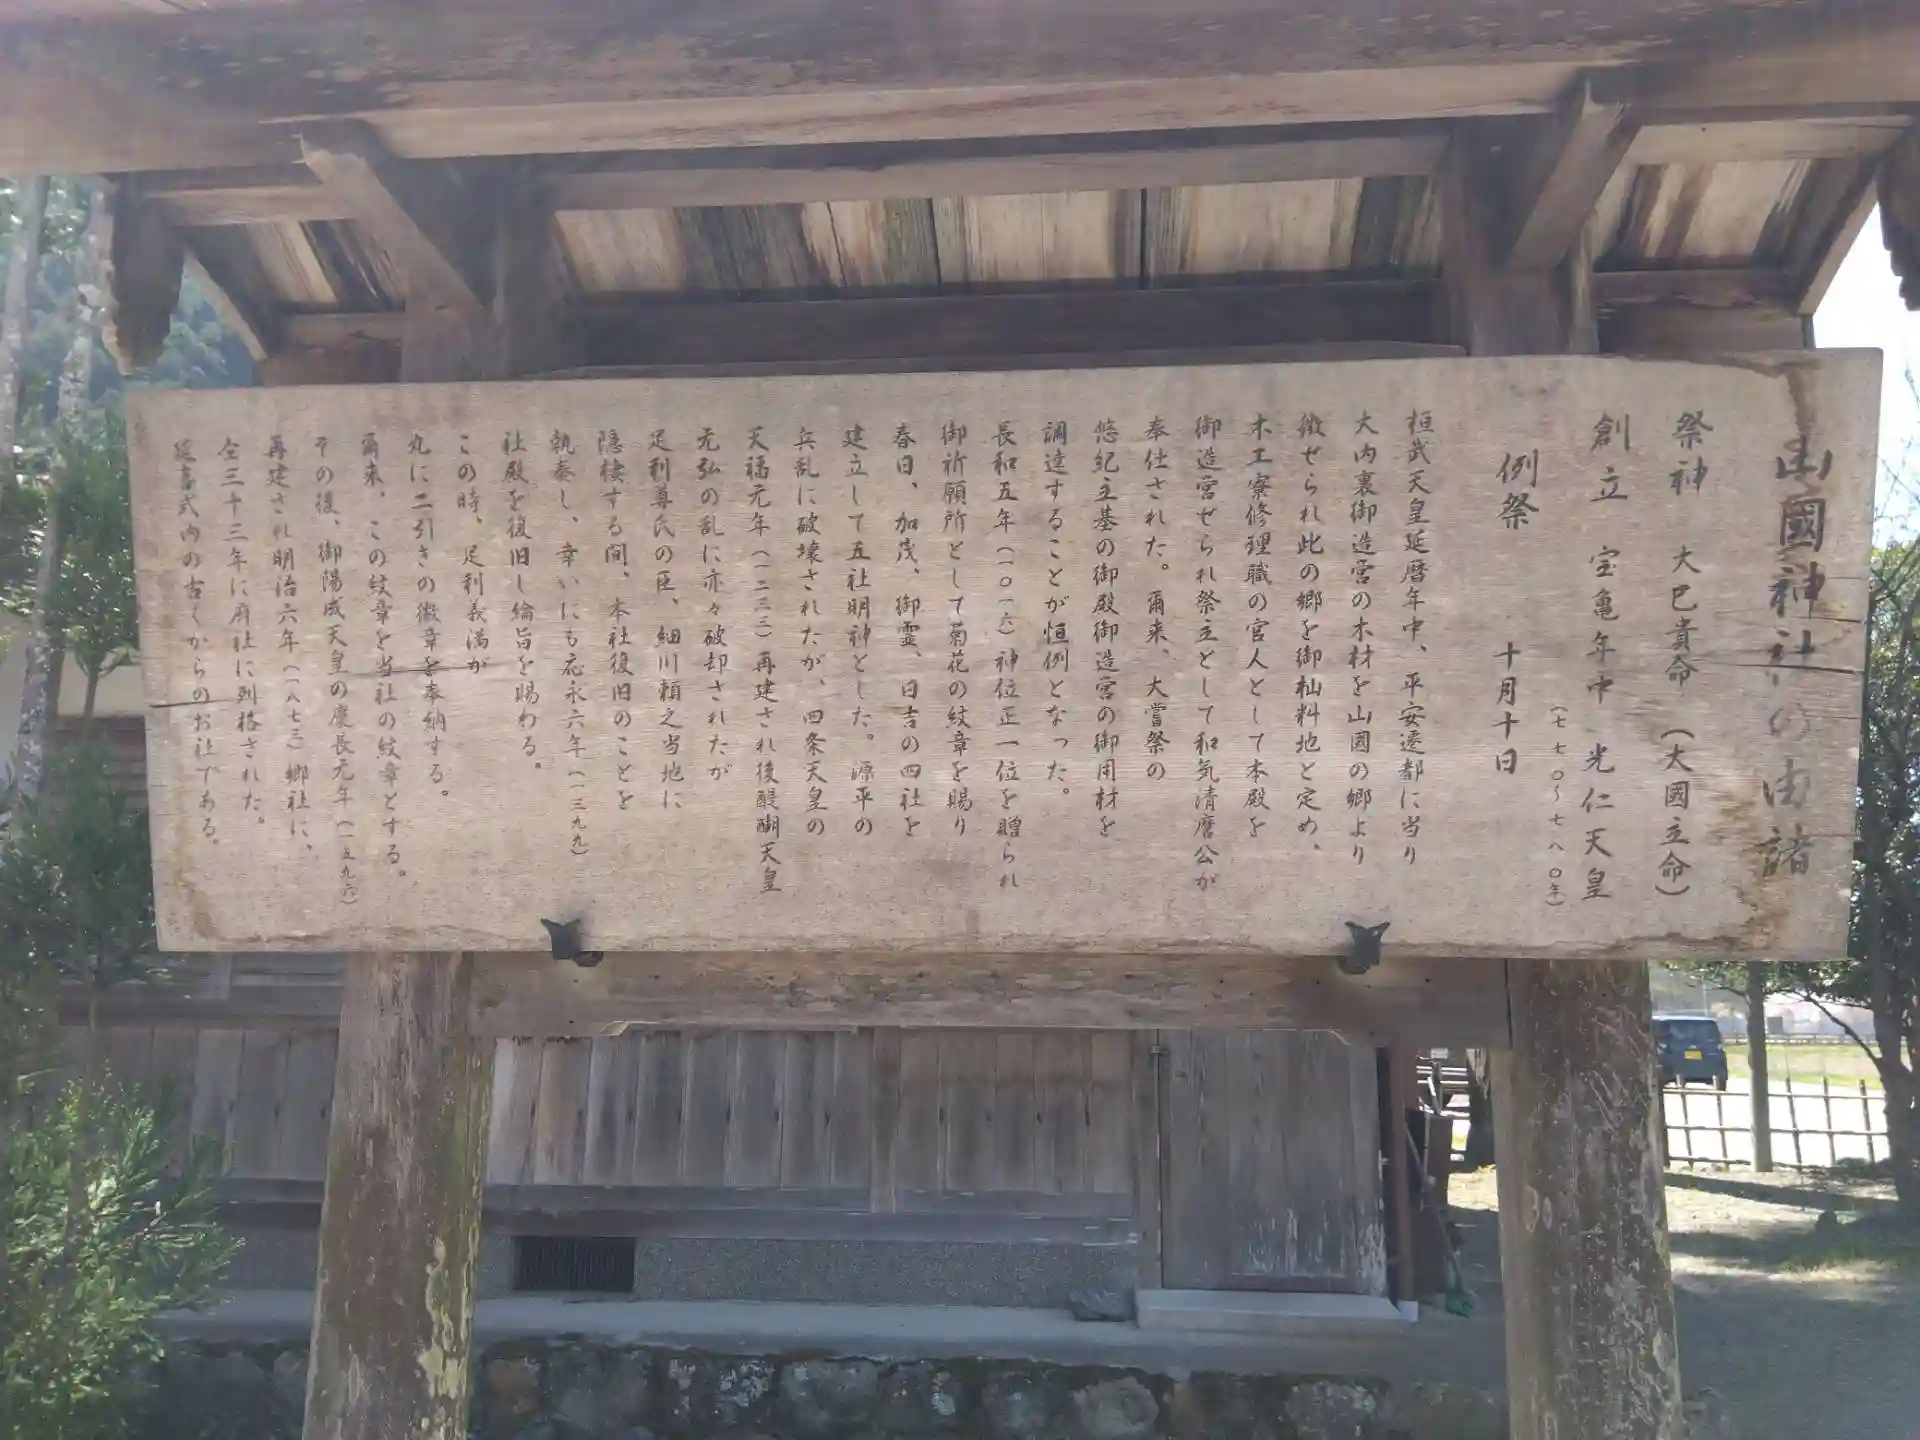 山國神社の由諸
祭神 大巳貴命（大國主命）
創立 宝亀年中 光仁天皇
（七七〇～七八〇年）
例祭 十月十日
桓武天皇延暦年中、平安遷都に当り
大内裏御造営の木材を山國の郷より
徴せられ此の郷を御杣料地と定め、
木工寮修理職の官人として本殿を
御造営せられ祭主として和気清麿公が
奉仕された。爾来、大嘗祭の
悠紀主基の御殿御造営の御用材を
調達することが恒例となった。
長和五年（一〇一六）神位正一位を贈られ
御祈願所として菊花の紋章を賜り
春日、加茂、御霊、日吉の四社を
建立して五社明神とした。源平の
兵乱に破壊されたが、四条天皇の
天福元年（一二三三）再建され後醍醐天皇
元弘の乱に亦々破却されたが
足利尊氏の臣、細川頼之当地に
隠棲する間、本社復旧のことを
執奏し、幸いにも応永六年（一三九九）
社殿を復旧し綸旨を賜わる。
この時、足利義満が
丸に二引きの徽章を奉納する。
爾来、この紋章を当社の紋章とする。
その後、御陽成天皇の慶長元年（一五九六）
再建され明治六年（一八七三）郷社に、
仝三十三年に府社に列格された。
延喜式内の古くからのお社である。